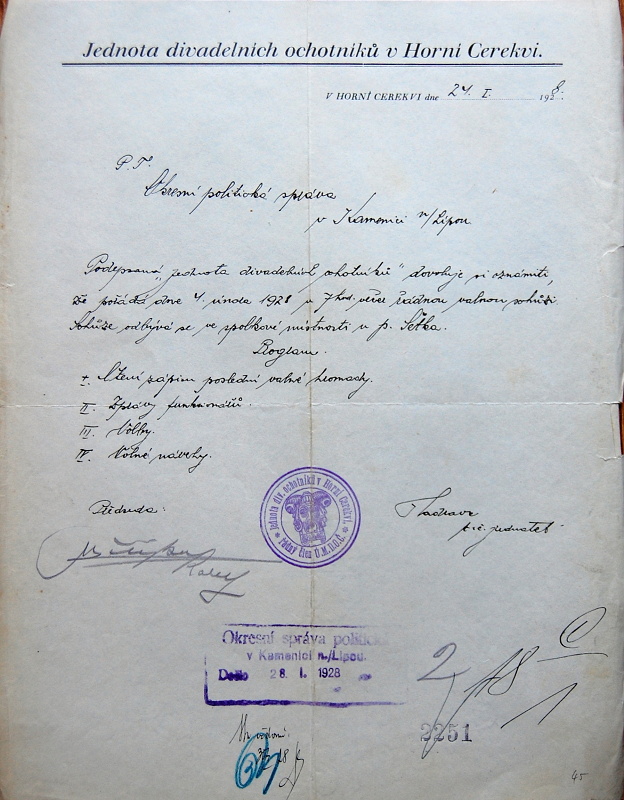 Jednota divadelních ochotníků v Horní Cerekvi.
V HORNÍ CEREKVI dne 24. I. 1928.
P. T.
Okresní politická správa
v Kamenici n/Lipou
Podepsaná „Jednota divadelních ochotníků" dovoluje si oznámiti,
že pořádá dne 4. února 1928 v 7 hod. večer řádnou valnou schůzi
Schůze odbývá se ve spolkové místnosti u p.
Program.
I. Čtení zápisu poslední valné hromady.
II. Zprávy funkcionářů.
III. Volby.
IV. Volné návrhy.
Předseda:
jednatel
Jednota div. ochotníků v Horní Cerekvi.
řádný člen Ú.M.D.O.Č.
Okresní správa politická
v Kamenici n./Lipou.
Došlo 28. I. 1928
2251
45